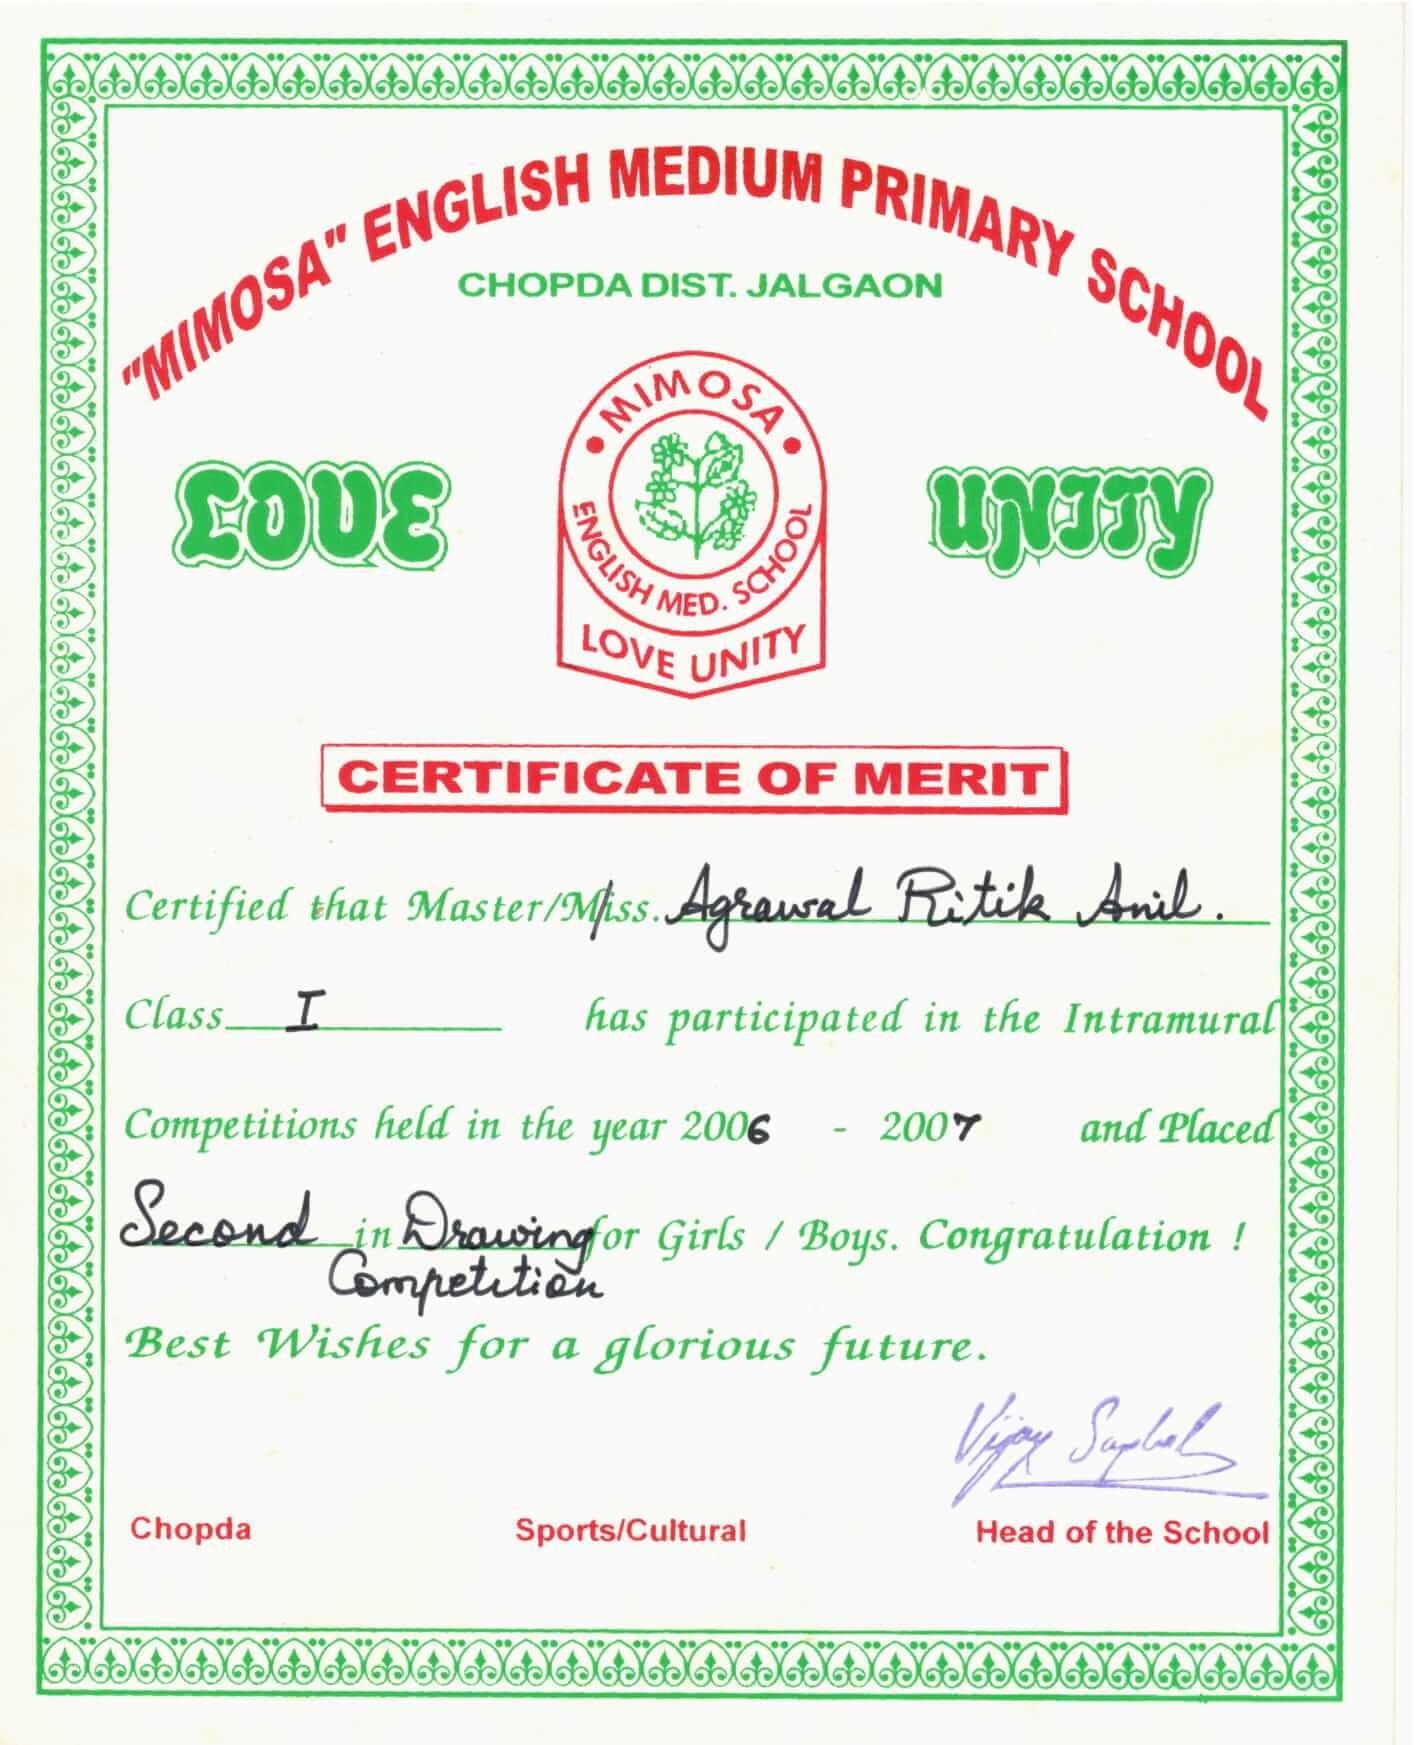 "MIMOSA" ENGLISH MEDIUM PRIMARY SCHOOL
CHOPDA DIST. JALGAON
LOVE
MIMOSA
ENGLISH MED. SCHOOL
LOVE UNITY
UNITY
CERTIFICATE OF MERIT
Certified that Master/Miss. Agrawal Ritik Anil.
Class I has participated in the Intramural
Competitions held in the year 2006 - 2007 and Placed
Second in Drawing for Girls / Boys. Congratulation !
Competition
Best Wishes for a glorious future.
Vijay
Chopda Sports/Cultural Head of the School